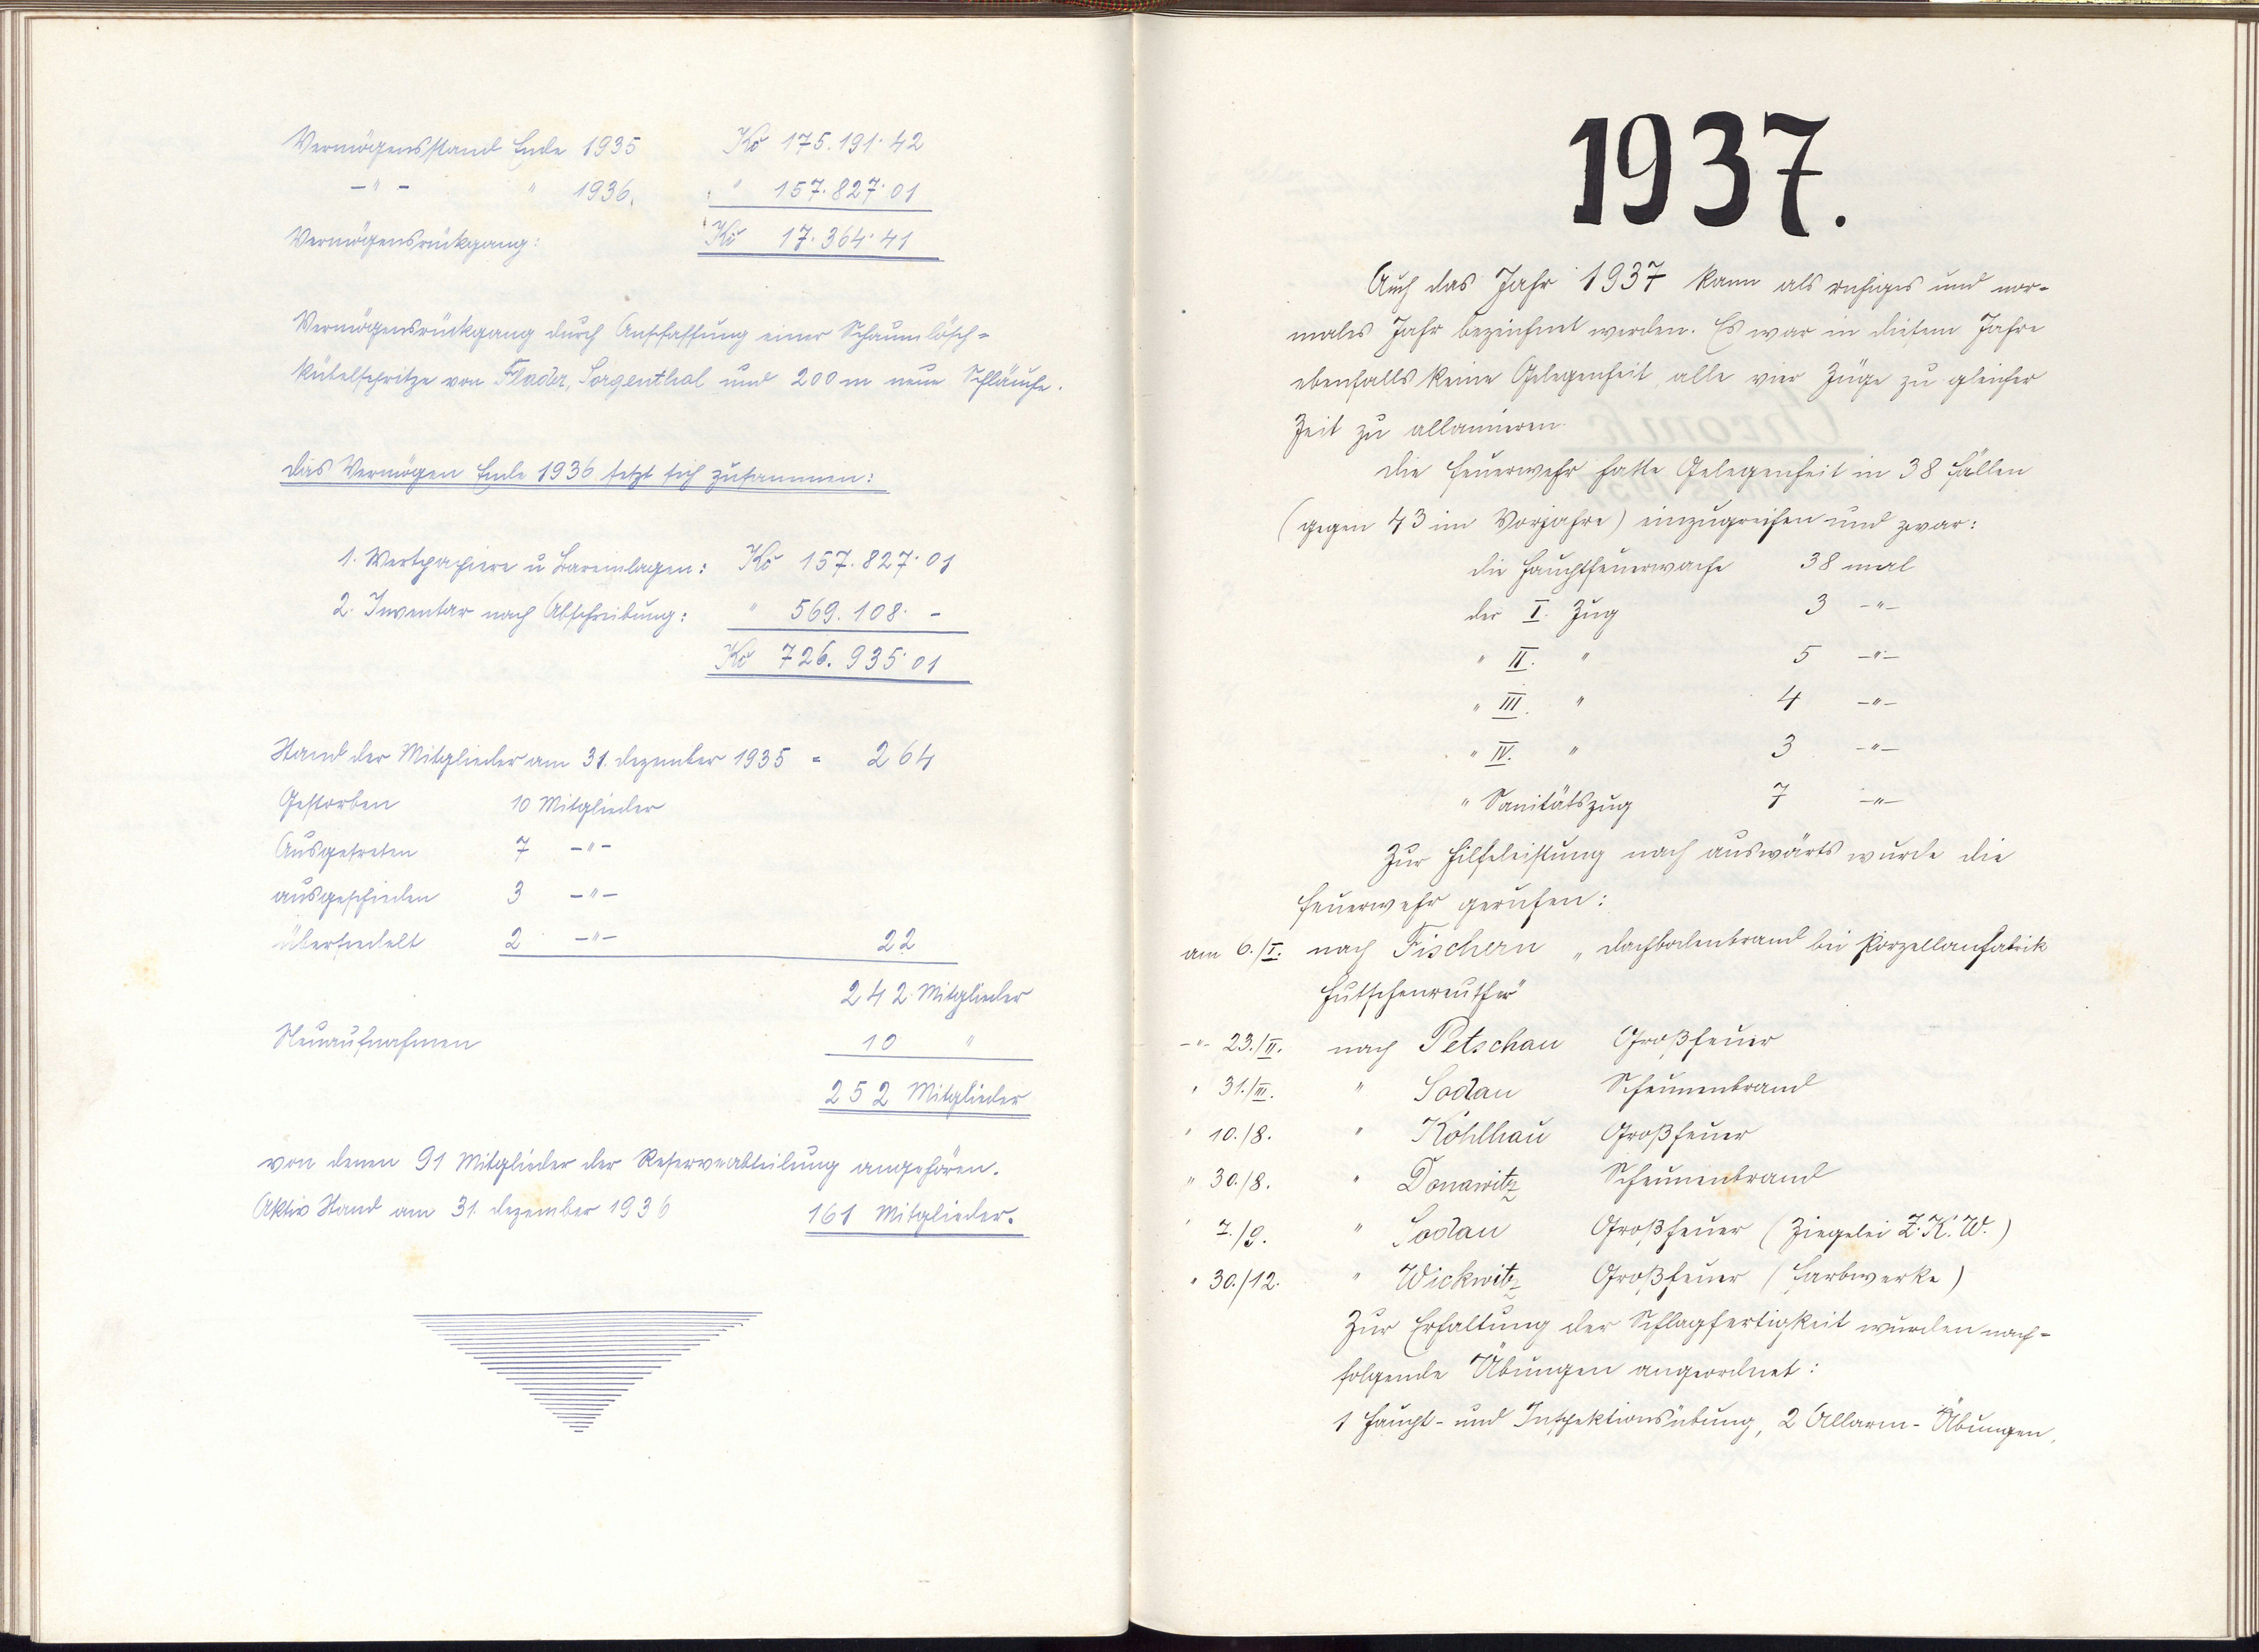 Vermögensstand Ende 1935 Kč 175.191·42
-"- " 1936. " 157.827·01
Vermögensrückgang: Kč 17.364·41
Vermögensrückgang durch Anschaffung einer Schaumlösch-
kübelspritze von Flader, Sorgenthal und 200 m neue Schläuche.
Das Vermögen Ende 1936 setzt sich zusammen:
1. Wertpapiere u Bareinlagen: Kč 157.827·01
2. Inventar nach Abschreibung: " 569.108·-
Kč 726.935·01
Stand der Mitglieder am 31. Dezember 1935 = 264
Gestorben 10 Mitglieder
Ausgetreten 7 -"-
ausgeschieden 3 -"-
übersiedelt 2 -"- 22
242 Mitglieder
Neuaufnahmen 10 "
252 Mitglieder
von denen 91 Mitglieder der Reserveabteilung angehören.
Aktiv Stand am 31. Dezember 1936 161 Mitglieder.
1937.
Auch das Jahr 1937 kann als ruhiges und nor-
males Jahr bezeichnet werden. Es war in diesem Jahre
ebenfalls keine Gelegenheit alle vier Züge zu gleicher
Zeit zu allamieren.
Die Feuerwehr hatte Gelegenheit in 38 Fällen
(gegen 43 im Vorjahre) einzugreifen und zwar:
die Hauptfeuerwache 38 mal
der I. Zug 3 -"-
" II. " 5 -"-
" III. " 4 -"-
" IV. " 3 -"-
" Sanitätszug 7 -"-
Zur Hilfeleistung nach auswärts wurde die
Feuerwehr gerufen:
am 6./I. nach Fischern „Dachbodenbrand bei Porzellanfabrik
Hutschenreuther"
-"- 23./II. nach Petschau Großfeuer
" 31./III. " Sodau Scheunenbrand
" 10./8. " Kohlhau Großfeuer
" 30./8. " Donawitz Scheunenbrand
" 7./9. " Sodau Großfeuer (Ziegelei Z.K.W.)
" 30./12. " Wickwitz Großfeuer (Farbwerke)
Zur Erhaltung der Schlagfertigkeit wurden nach-
folgende Übungen angeordnet:
1 Haupt- und Inspektionsübung, 2 Allarm-Übungen,